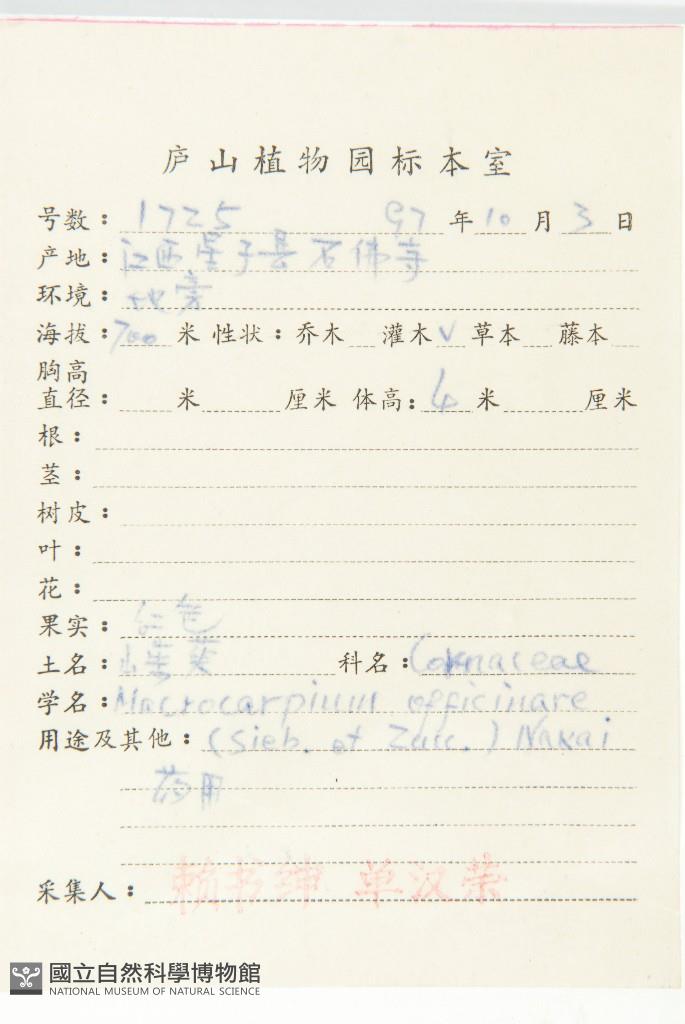 庐山植物园标本室
号数：1725 97年10月3日
产地：江西星子县石佛寺
环境：地旁
海拔：700米 性状：乔木 灌木√ 草本 藤本
胸高
直径： 米 厘米 体高：4米 厘米
根：
茎：
树皮：
叶：
花：
果实：红色
土名：山茱萸 科名：Cornaceae
学名：Macrocarpium officinare
用途及其他：(Sieb. et Zucc.) Nakai
药用
采集人：赖书绅 单汉荣
國立自然科學博物館
NATIONAL MUSEUM OF NATURAL SCIENCE